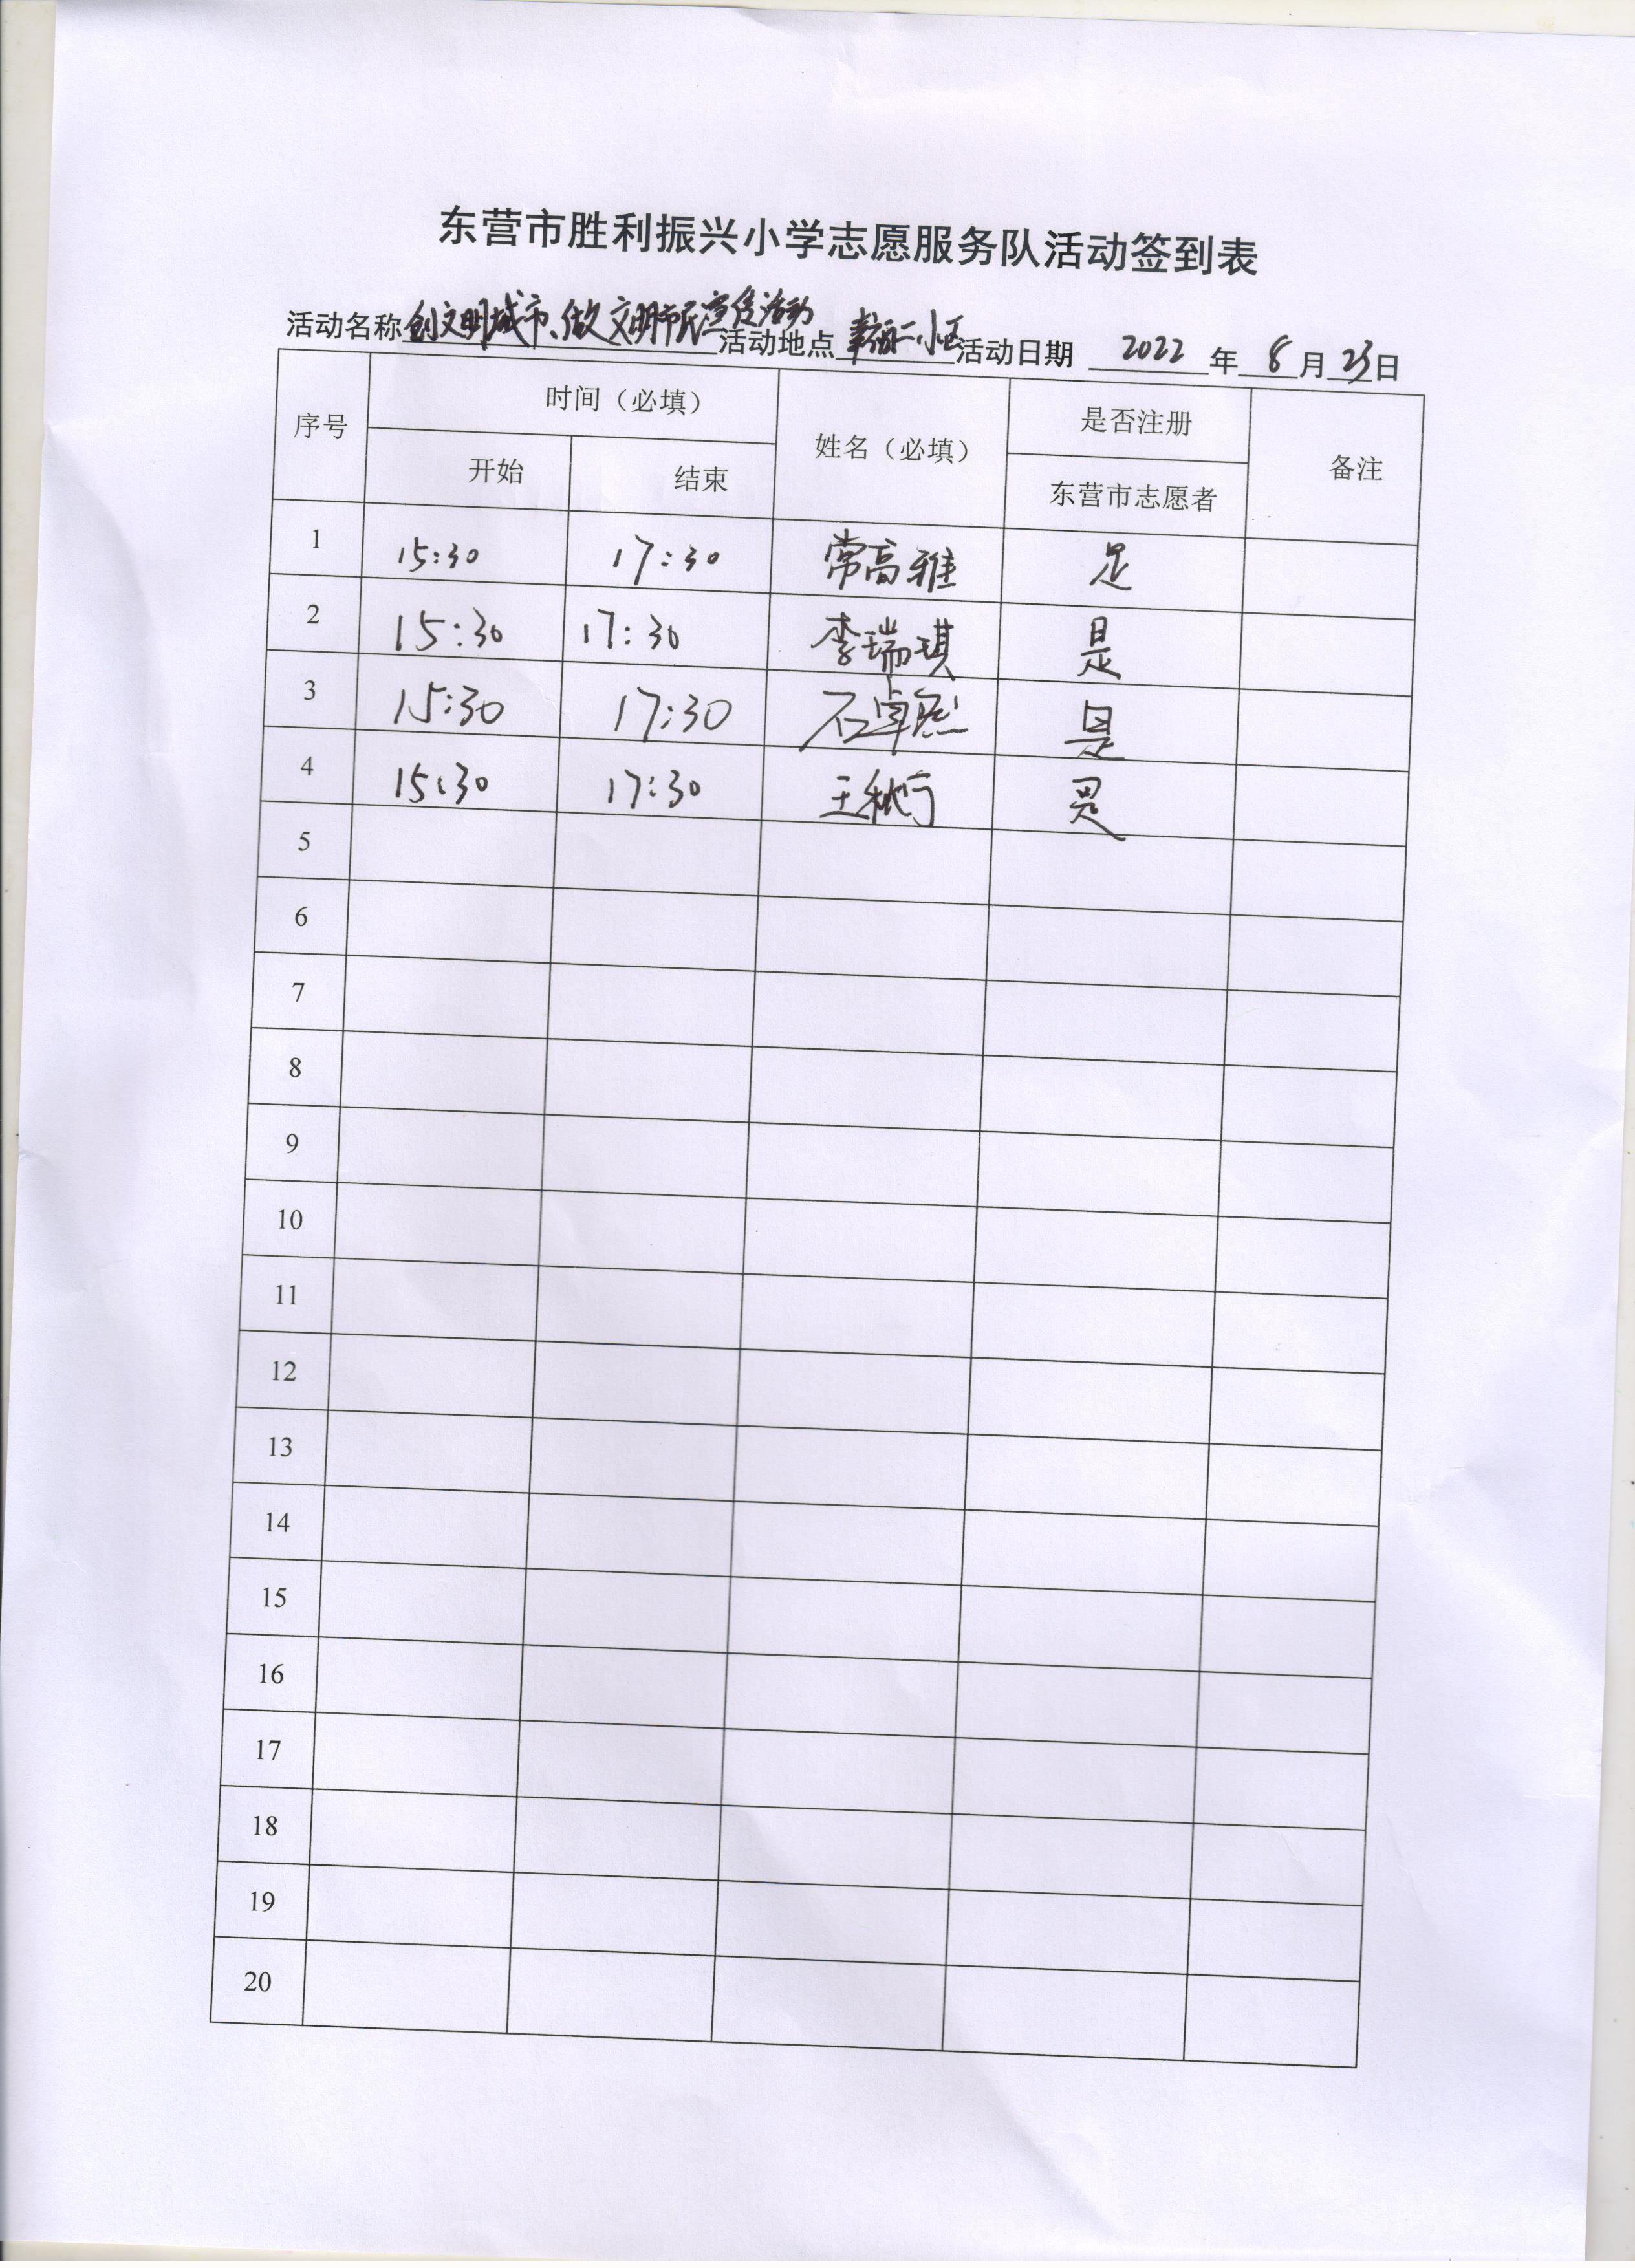 东营市胜利振兴小学志愿服务队活动签到表
活动名称 创文明城市、做文明市民宣传活动 活动地点 二小区 活动日期 2022 年 8 月 23 日
序号 时间（必填） 姓名（必填） 是否注册 备注
开始 结束 东营市志愿者
1 15:30 17:30 常高雅 是
2 15:30 17:30 李瑞琪 是
3 15:30 17:30 石卓然 是
4 15:30 17:30 王秋 是
5
6
7
8
9
10
11
12
13
14
15
16
17
18
19
20